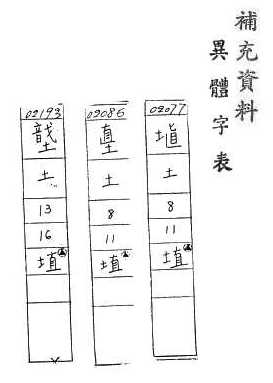 補充資料
異體字表
02077
土
8
11
埴
02086
土
8
11
埴
02193
土
13
16
埴